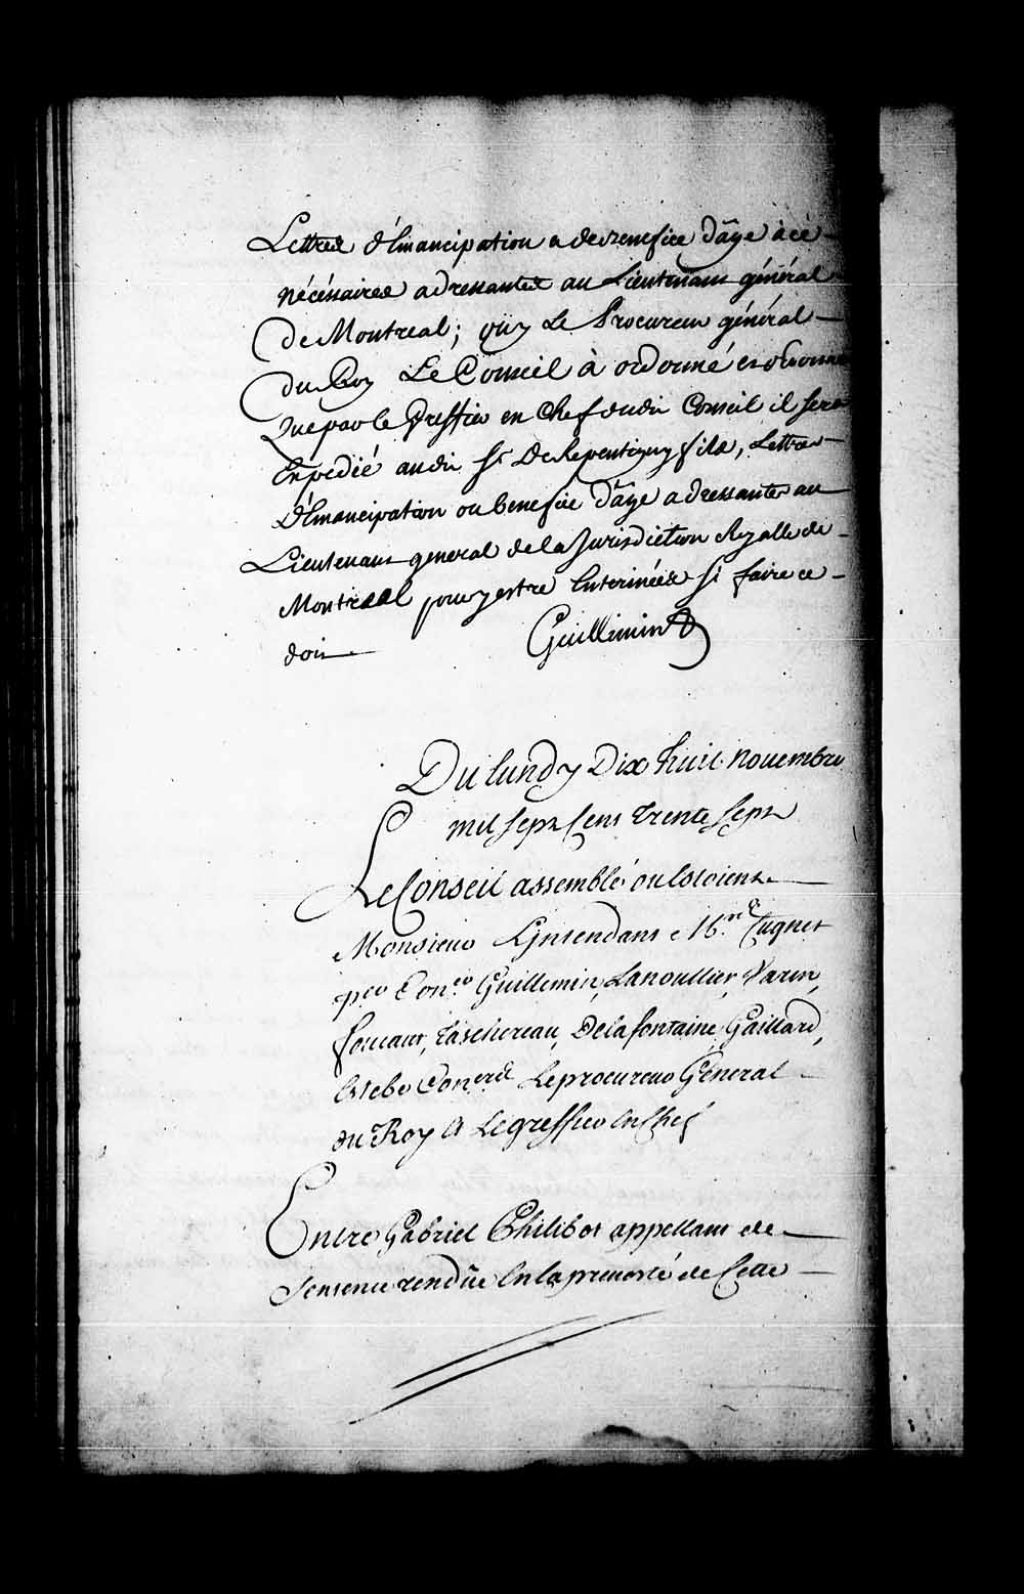 Lettres d'Emancipation & de benefice d'âge à ce
nécéssaires adressantes au Lieutenant général
de Montreal; ouy Le Procureur général
du Roy Le Conseil à ordonné et ordonne
Que par le Greffier en Chef dudit Conseil il sera
Expedié audit Sr. De Repentigny fils, Lettres
d'Emancipation ou benefice d'âge adressantes au
Lieutenant general de la Jurisdiction Royalle de
Montreal pour y estre Enterinées si faire ce
doit
Guillimin
Du lundy Dix huit novembre
mil sept Cent trente sept
Le Conseil assemblé ou Estoient
Monsieur L'Intendant Mrs. Cugnet
per Coner Guillimin, Lanoullier, Varin,
foucaut, taschereau, Delafontaine, Gaillard,
Estebe Coners Le procureur General
du Roy Et Le greffier En Chef
Entre Gabriel Philibot appellant de
Sentence rendüe En la prevosté de Cette